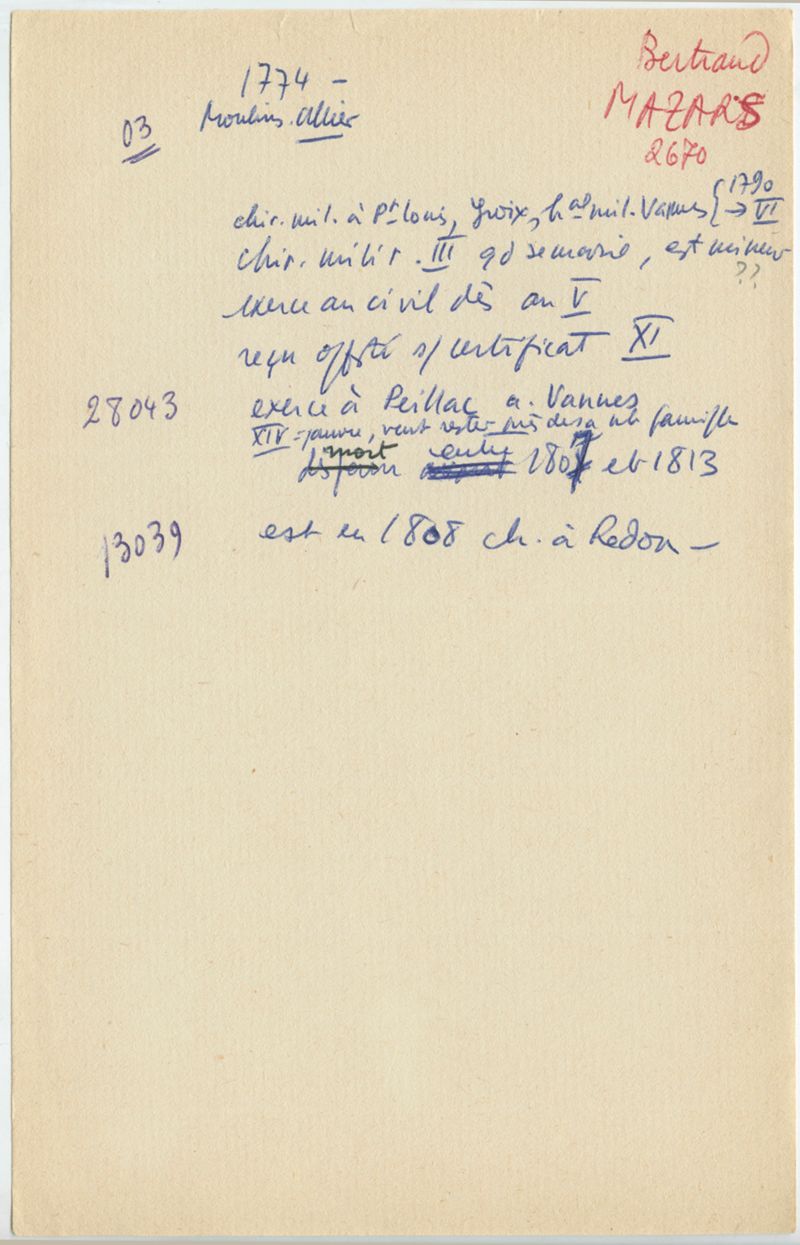 1774 –
Bertrand
MAZARS
2670
03 Moulins. Allier
chir. mil. à Pt Louis, Groix, hal mil. Vannes { 1790 → VI
chir. milit. III qd se marie, est mineur
??
exerce au civil dès an V
reçu off. s/ certificat XI
28043 exerce à Peillac a. Vannes
XIV = pauvre, veut rester près de sa nb famille
mort entre 1807 et 1813
13039 est en 1808 ch. à Redon –